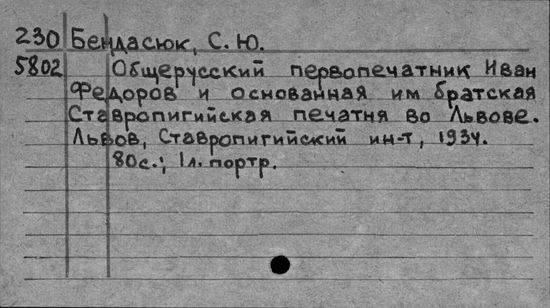 230 Бендасюк, С. Ю.
5802 Общерусский первопечатник Иван
Федоров и основанная им братская
Ставропигийская печатня во Львове.
Львов, Ставропигийский ин-т, 1934.
80с.; 1л. портр.